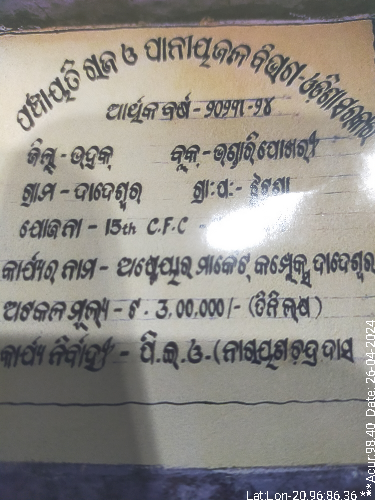 ପଞ୍ଚାୟତି ରାଜ ଓ ପାନୀୟଜଳ ବିଭାଗ-ଓଡ଼ିଶା ସରକାର
ଆର୍ଥିକ ବର୍ଷ - ୨୦୨୩-୨୪
ଜିଲ୍ଲା - ଭଦ୍ରକ ବ୍ଲକ - ଭଣ୍ଡାରିପୋଖରୀ
ଗ୍ରାମ - ଦାଦେଶ୍ୱର ଗ୍ରା:ପ:-
ଯୋଜନା - 15th C.F.C -
କାର୍ଯ୍ୟର ନାମ - ମାର୍କେଟ୍ କମ୍ପ୍ଲେକ୍ସ ଦାଦେଶ୍ୱର
ଅଟକଳ ମୂଲ୍ୟ - ଟ. 3,00,000/- (ତିନି ଲକ୍ଷ)
କାର୍ଯ୍ୟ ନିର୍ବାହୀ - ପି.ଇ.ଓ. - (ନାରାୟଣ ଚନ୍ଦ୍ର ଦାସ
Lat:Lon-20.96:86.36 ***Acur:98.40 Date: 26-04-2024